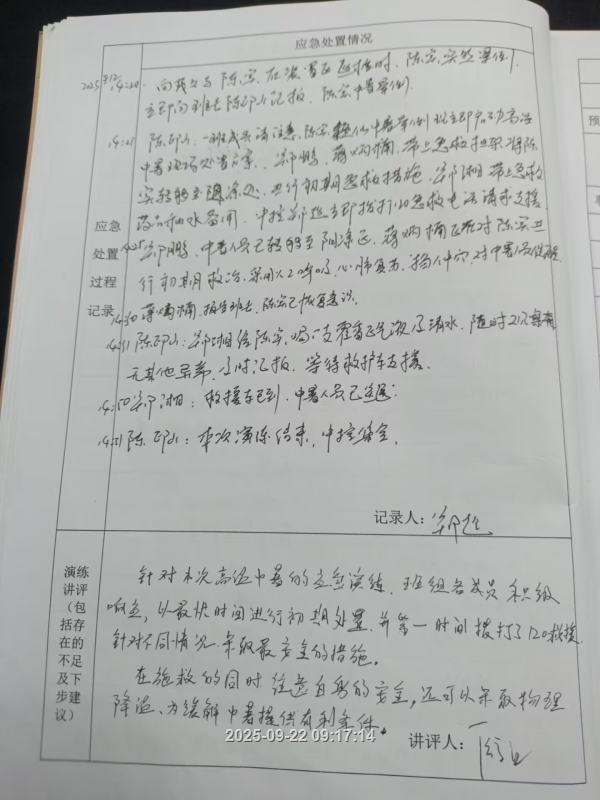 应急处置情况
2025 14:20 向 与陈宏在装置区巡检时,陈宏突然晕倒,
立即向班长陈邱山汇报,陈宏中暑晕倒。
陈邱山:一班成员请注意,陈宏 中暑晕倒 现立即启动高温
中暑现场处置方案,郑鹏、蒋炳楠,带上急救担架将陈
宏转移至阴凉处,进行初期急救措施,郑湘带上急救
药品和水备用,中控郑延立即拨打120急救电话请求支援
应急处置过程记录
14:25 郑鹏,中暑人员已转移至阴凉区,蒋炳楠正在对陈宏进
行初期急救,采用人工呼吸,心肺复苏,掐人中穴,对中暑人员
14:30 蒋炳楠,报告班长,陈宏已恢复意识。
14:31 陈邱山:郑湘给陈宏喝一支藿香正气液及清水,随时 观察有
无其他异常,及时汇报,等待救护车支援。
14:50 郑湘:救援车已到,中暑人员已送
14:51 陈邱山:本次演练结束,中控集合。
记录人:郑延
演练讲评(包括存在的不足及下步建议)
针对本次高温中暑的应急演练,班组各成员积极
响应,以最快时间进行初期处置,并第一时间拨打了120救援,
针对不同情况采取最安全的措施。
在施救的同时注意自身的安全,还可以采取物理
降温,为缓解中暑提供有利条件。
2025-09-22 09:17:14
讲评人: